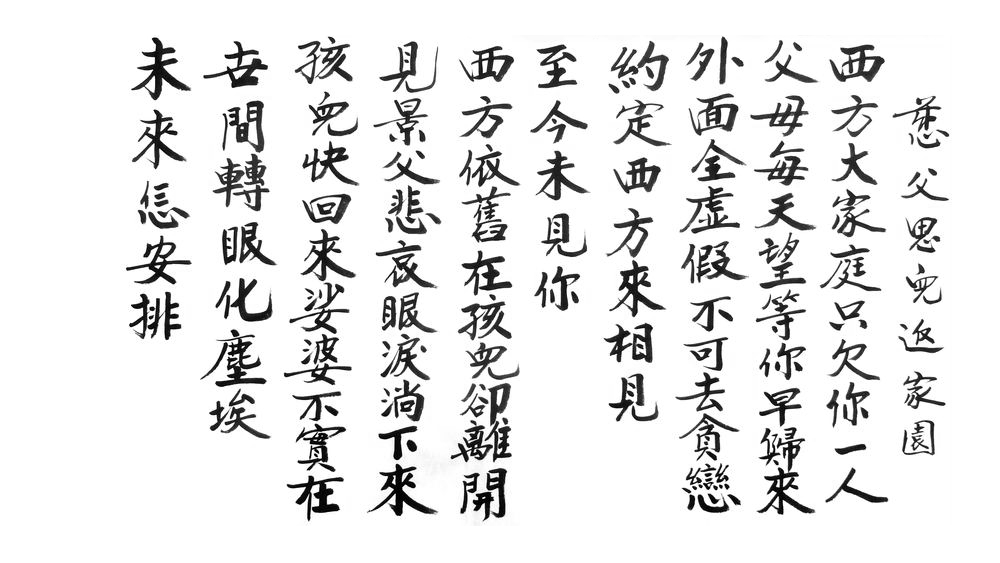 慈父思兒返家園
西方大家庭只欠你一人
父母每天望等你早歸來
外面全虛假不可去貪戀
約定西方來相見
至今未見你
西方依舊在孩兒卻離開
見景父悲哀眼淚淌下來
孩兒快回來娑婆不實在
世間轉眼化塵埃
未來怎安排